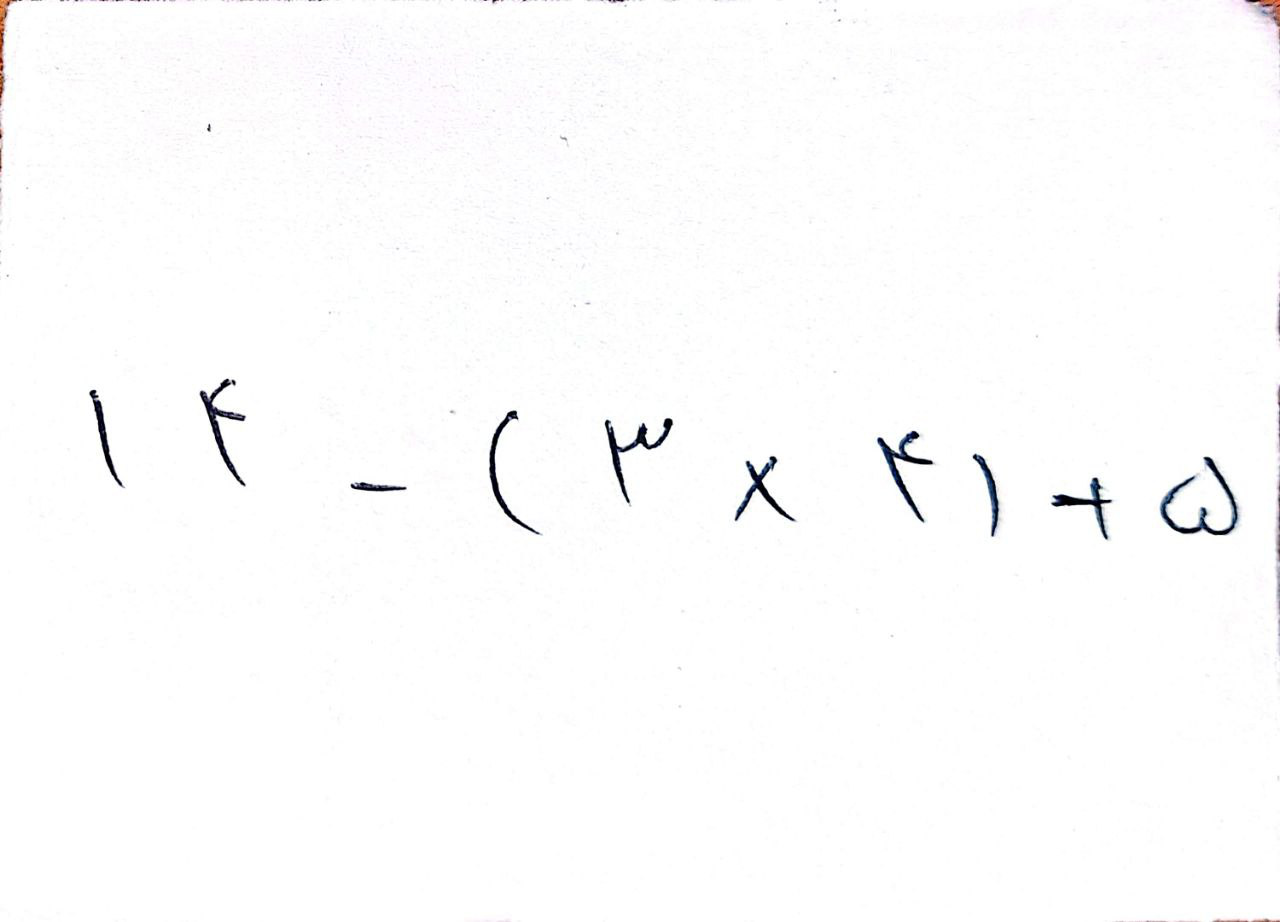 ۱۴ - (۳ × ۴) + ۵